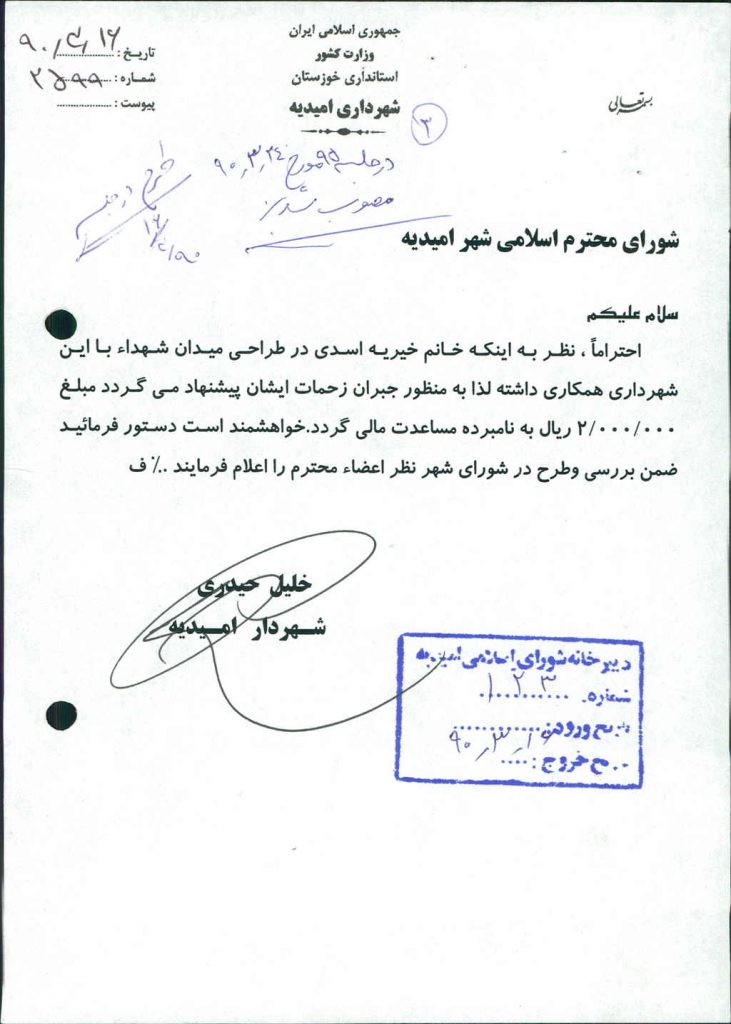 بسمه تعالی
جمهوری اسلامی ایران
وزارت کشور
استانداری خوزستان
شهرداری امیدیه
تاریخ :
شماره : ۲۵۹۹
پیوست :
۳
در جلسه ۹۵ مورخ ۹۰,۳,۲۴
مصوب شد
طرح در جلسه
شورای محترم اسلامی شهر امیدیه
سلام علیکم
احتراماً ، نظر به اینکه خانم خیریه اسدی در طراحی میدان شهداء با این
شهرداری همکاری داشته لذا به منظور جبران زحمات ایشان پیشنهاد می گردد مبلغ
۲/۰۰۰/۰۰۰ ریال به نامبرده مساعدت مالی گردد.خواهشمند است دستور فرمائید
ضمن بررسی وطرح در شورای شهر نظر اعضاء محترم را اعلام فرمایند ..٪ ف
خلیل حیدری
شهردار امیدیه
دبیرخانه شورای اسلامی امیدیه
شماره. ۱۲۳
تاریخ ورود:
تاریخ خروج :